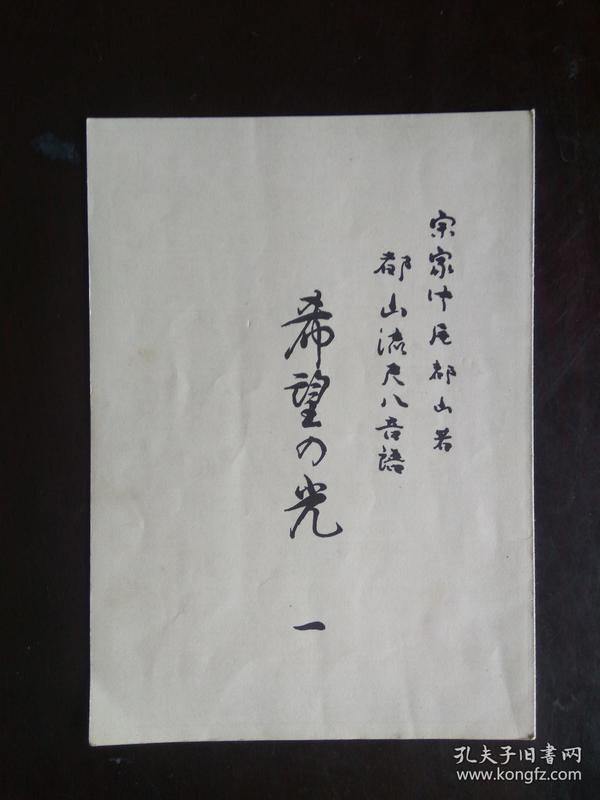 宗家中尾都山著
都山流尺八音譜
希望の光
一
孔夫子旧書网
www.kongfz.com